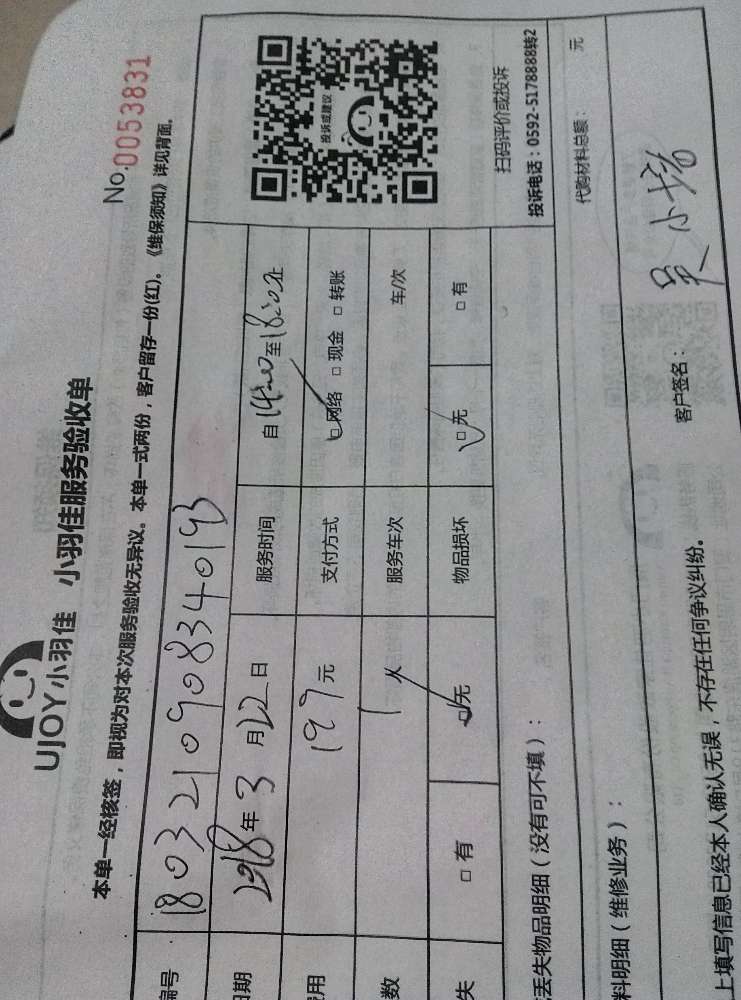 UJOY小羽佳 小羽佳服务验收单
No.0053831
本单一经核签，即视为对本次服务验收无异议。本单一式两份，客户留存一份(红)。《维保须知》详见背面。
编号 180321090834019
日期 2018年3月22日 服务时间 自14:00至18:00止
费用 197元 支付方式 □网络 □现金 □转账
数 1 服务车次 车/次
失 □有 □无 物品损坏 □无 □有
投诉或建议
扫码评价或投诉
投诉电话：0592-5178888转2
丢失物品明细（没有可不填）：
料明细（维修业务）： 代购材料总额： 元
上填写信息已经本人确认无误，不存在任何争议纠纷。 客户签名： 吴小